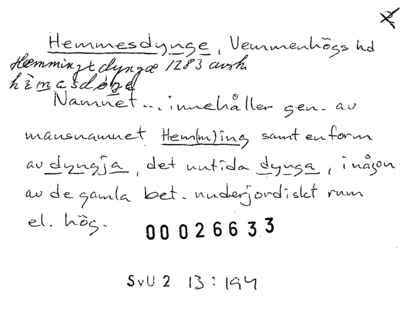 Hemmesdynge, Vemmenhögs hd
Hæmmingxdyngæ 1283 avskr
hèmasdøŋa
Namnet... innehåller gen. av
mansnamnet Hem(m)ing samt en form
av dyngja, det nutida dynga, i någon
av de gamla bet. underjordiskt rum
el. hög.
00026633
SvU 2 13:194